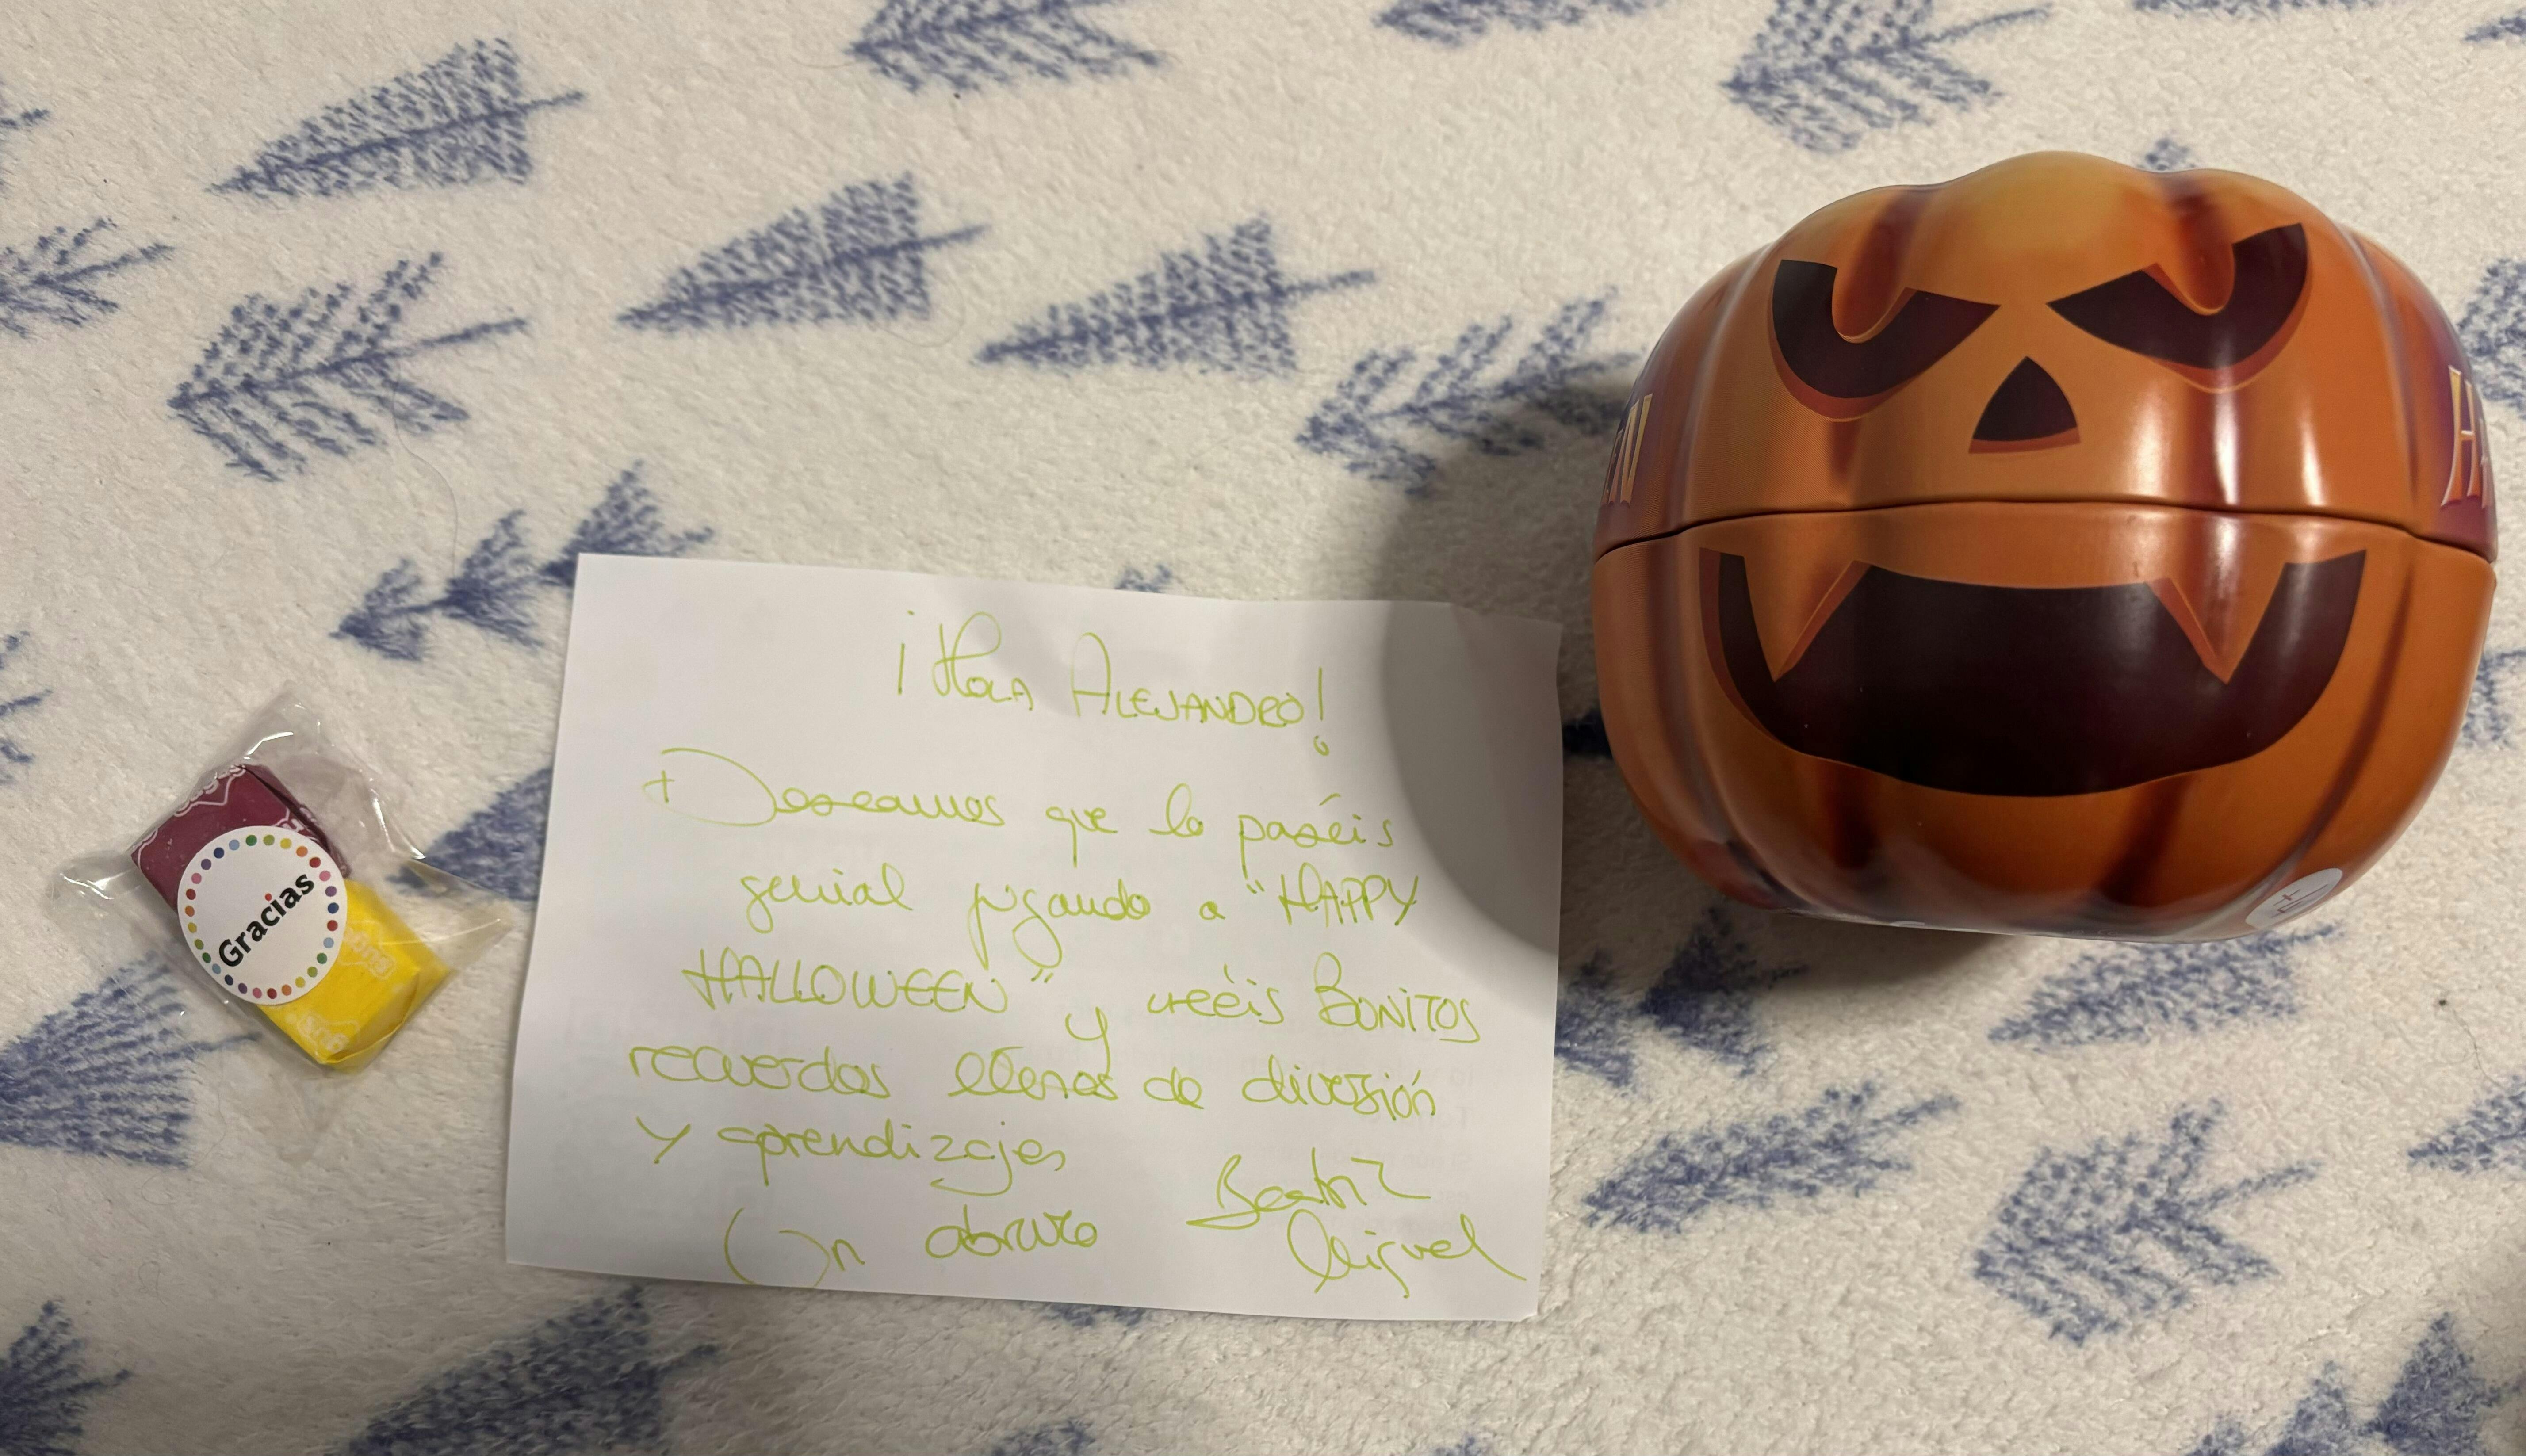 Gracias
¡Hola ALEJANDRO!
Deseamos que lo paséis
genial jugando a "HAPPY
HALLOWEEN" y creéis BONITOS
recuerdos llenos de diversión
y aprendizajes
Un abrazo
Beatriz
Miguel